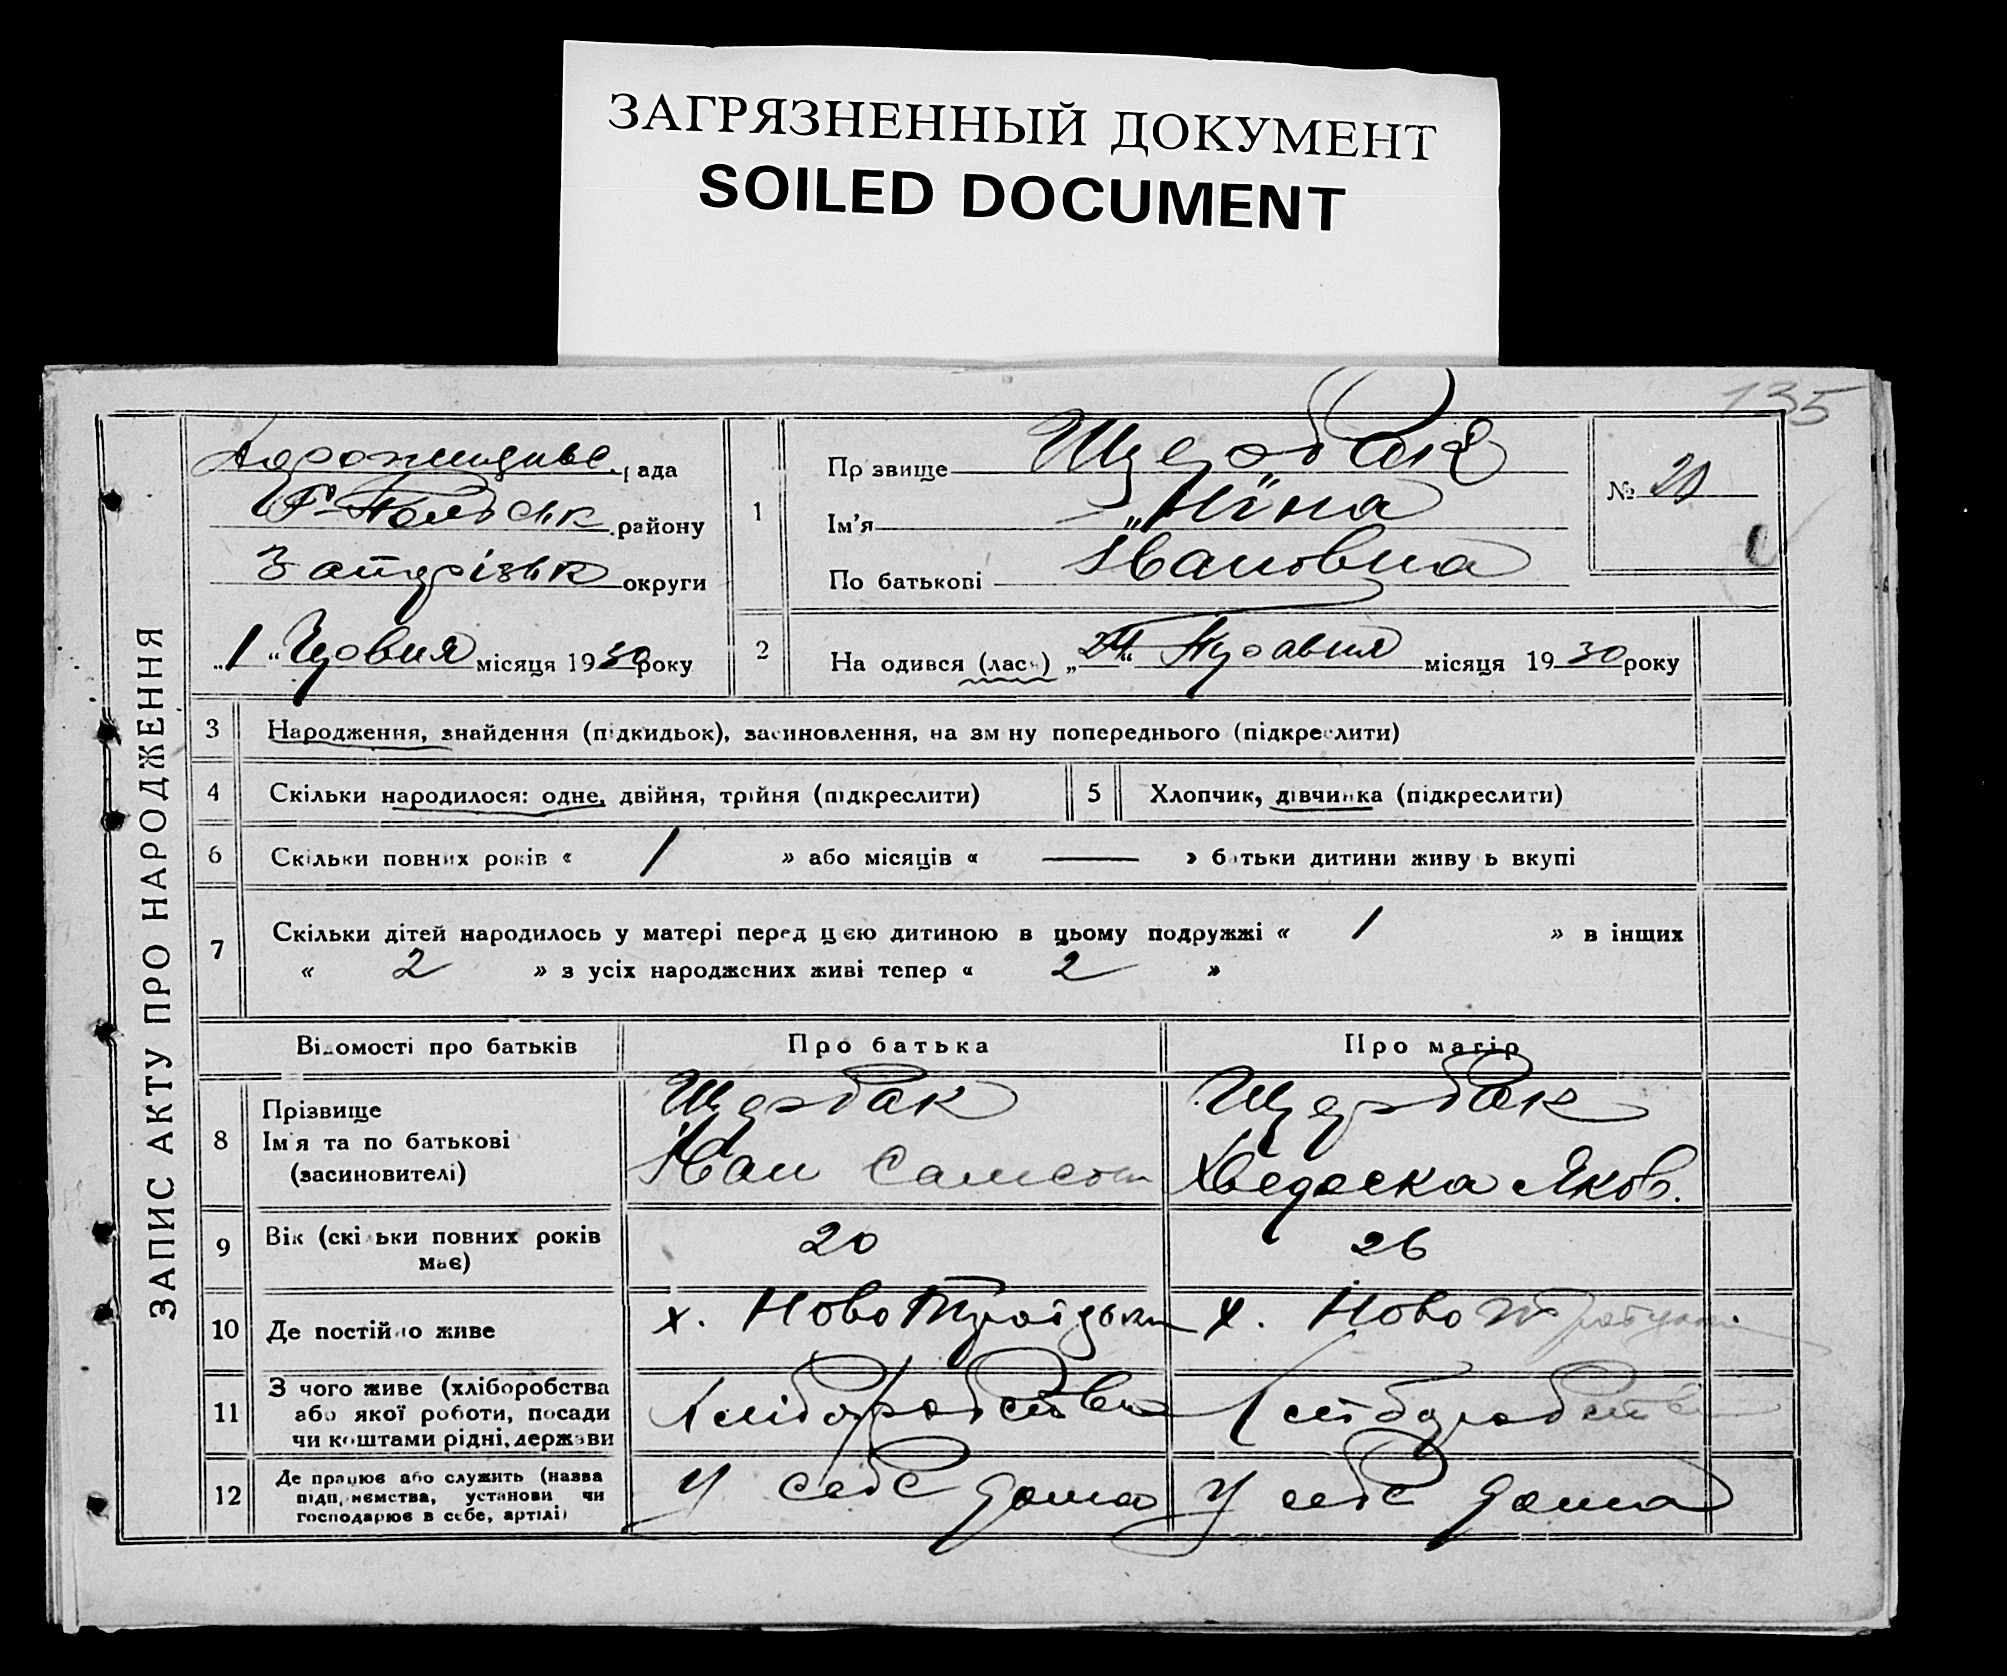 ЗАГРЯЗНЕННЫЙ ДОКУМЕНТ
SOILED DOCUMENT
135
ЗАПИС АКТУ ПРО НАРОДЖЕННЯ
рада
району
Запорізьк округи
„1“ Червня місяця 1930 року
1
Прізвище Щербак
Ім'я „Ніна
По батькові Івановна
№ 20
2
На одився (лась) „ “ Травня місяця 1930 року
3 Народження, знайдення (підкидьок), засиновлення, на зміну попереднього (підкреслити)
4 Скільки народилося: одне, двійня, трійня (підкреслити)
5 Хлопчик, дівчинка (підкреслити)
6 Скільки повних років « 1 » або місяців « — » батьки дитини живуть вкупі
7 Скільки дітей народилось у матері перед цією дитиною в цьому подружжі « 1 » в інщих
« 2 » з усіх народжених живі тепер « 2 »
Відомості про батьків Про батька Про матір
8 Прізвище
Ім'я та по батькові
(засиновителі)
Щербак
Іван Самсон
Щербак
Хведоска Яков.
9 Вік (скільки повних років
має)
20 26
10 Де постійно живе
х. Ново Троїцьки х. Ново
11 З чого живе (хліборобства
або якої роботи, посади
чи коштами рідні, держави
Хліборобства Хліборобства
12 Де працює або служить (назва
підприємства, установи чи
господарює в себе, артілі)
У себе дома У себе дома